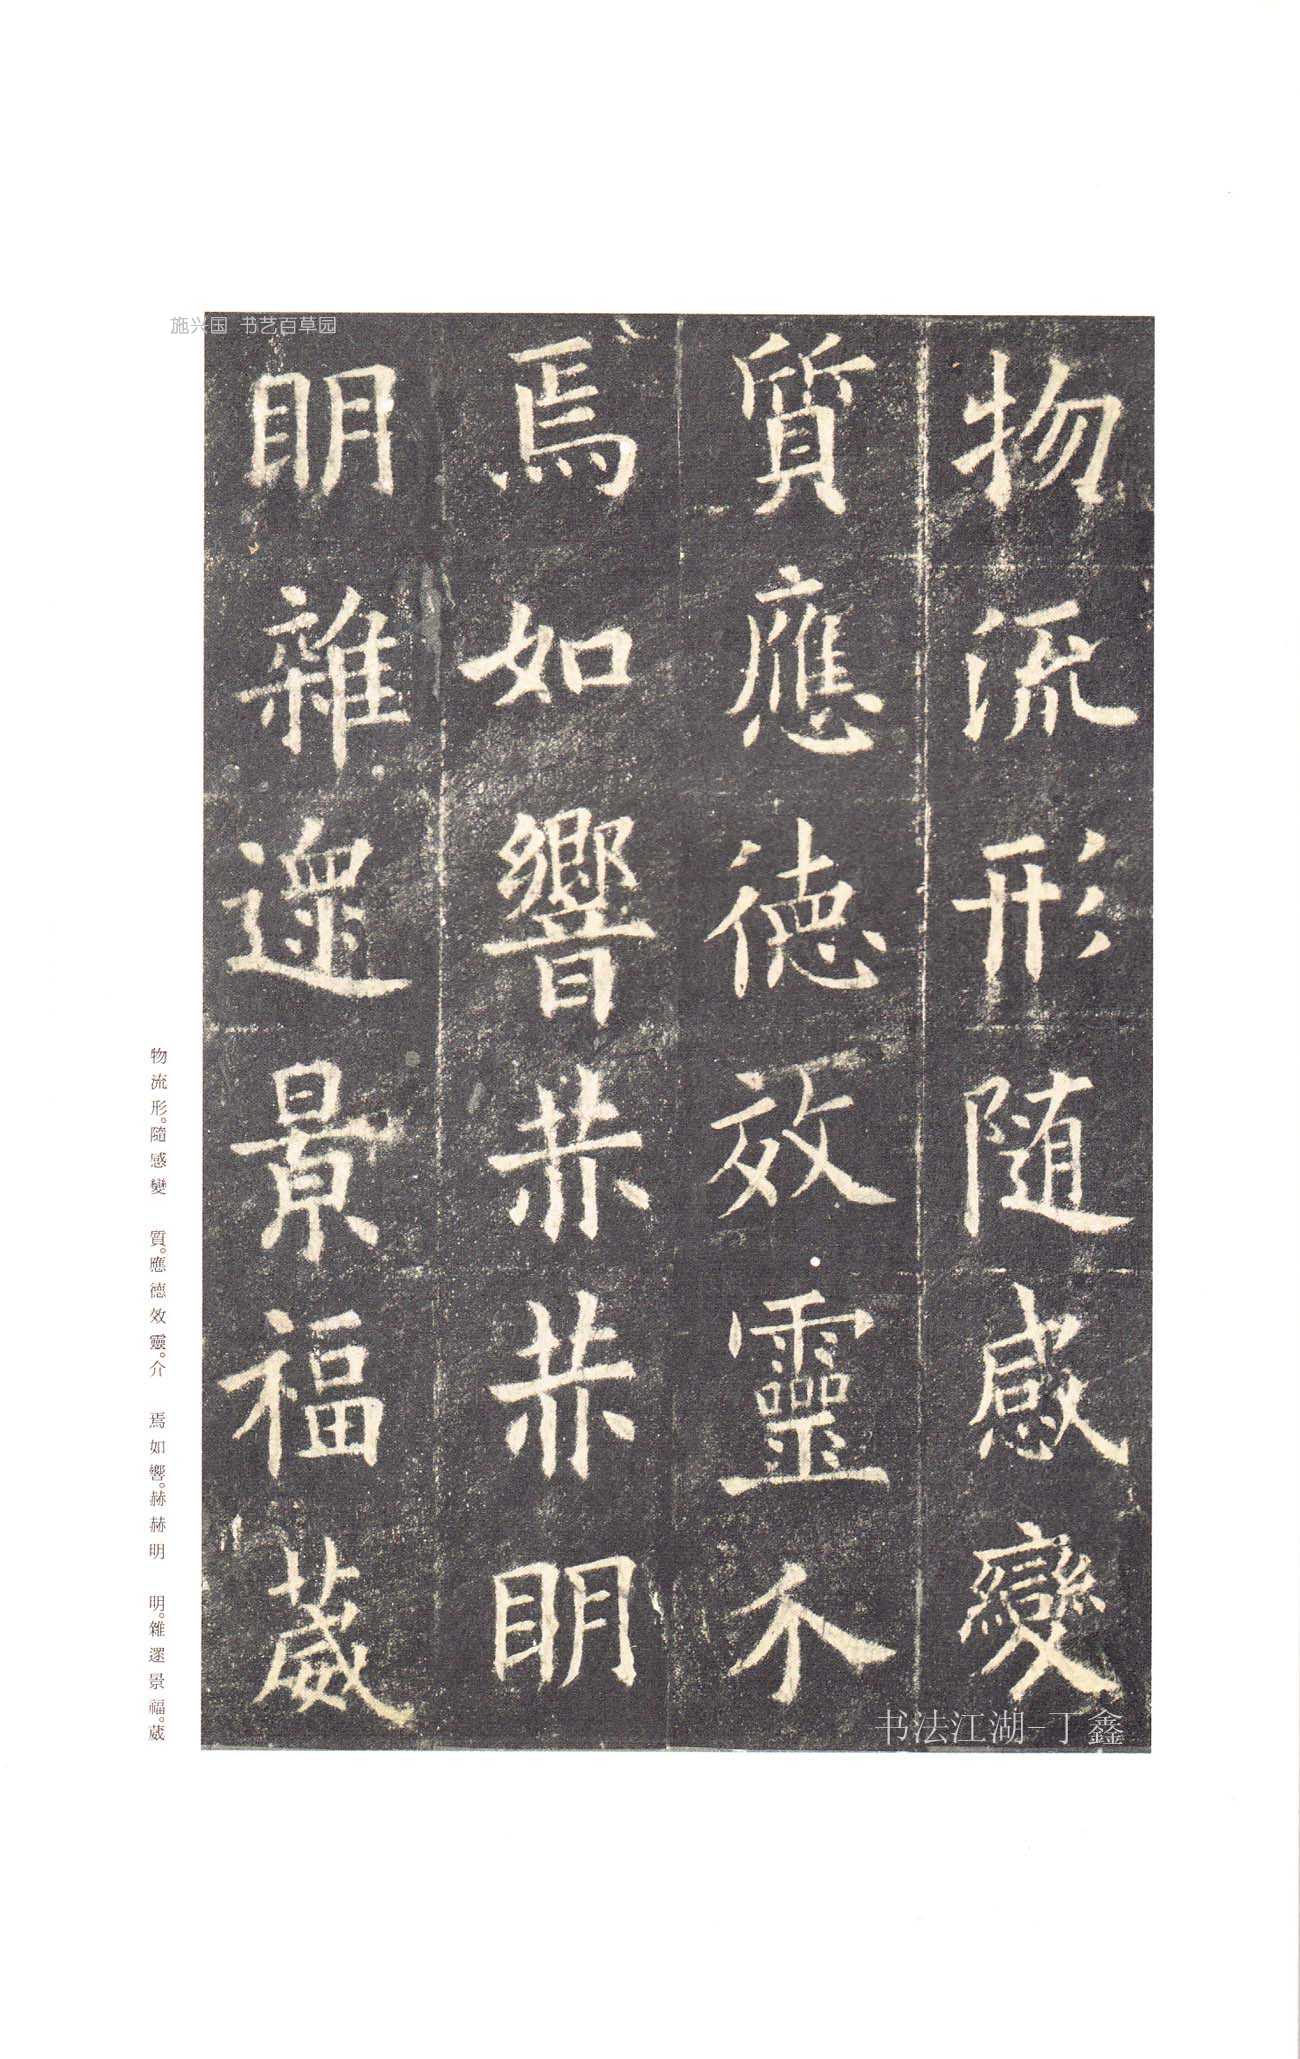 施兴国 书艺百草园
物流形隨感變
質應德效靈介
焉如響赫赫明
明雜遝景福葳
书法江湖-丁鑫
物流形。隨感變 質。應德效靈。介 焉如響。赫赫明 明。雜遝景福。葳